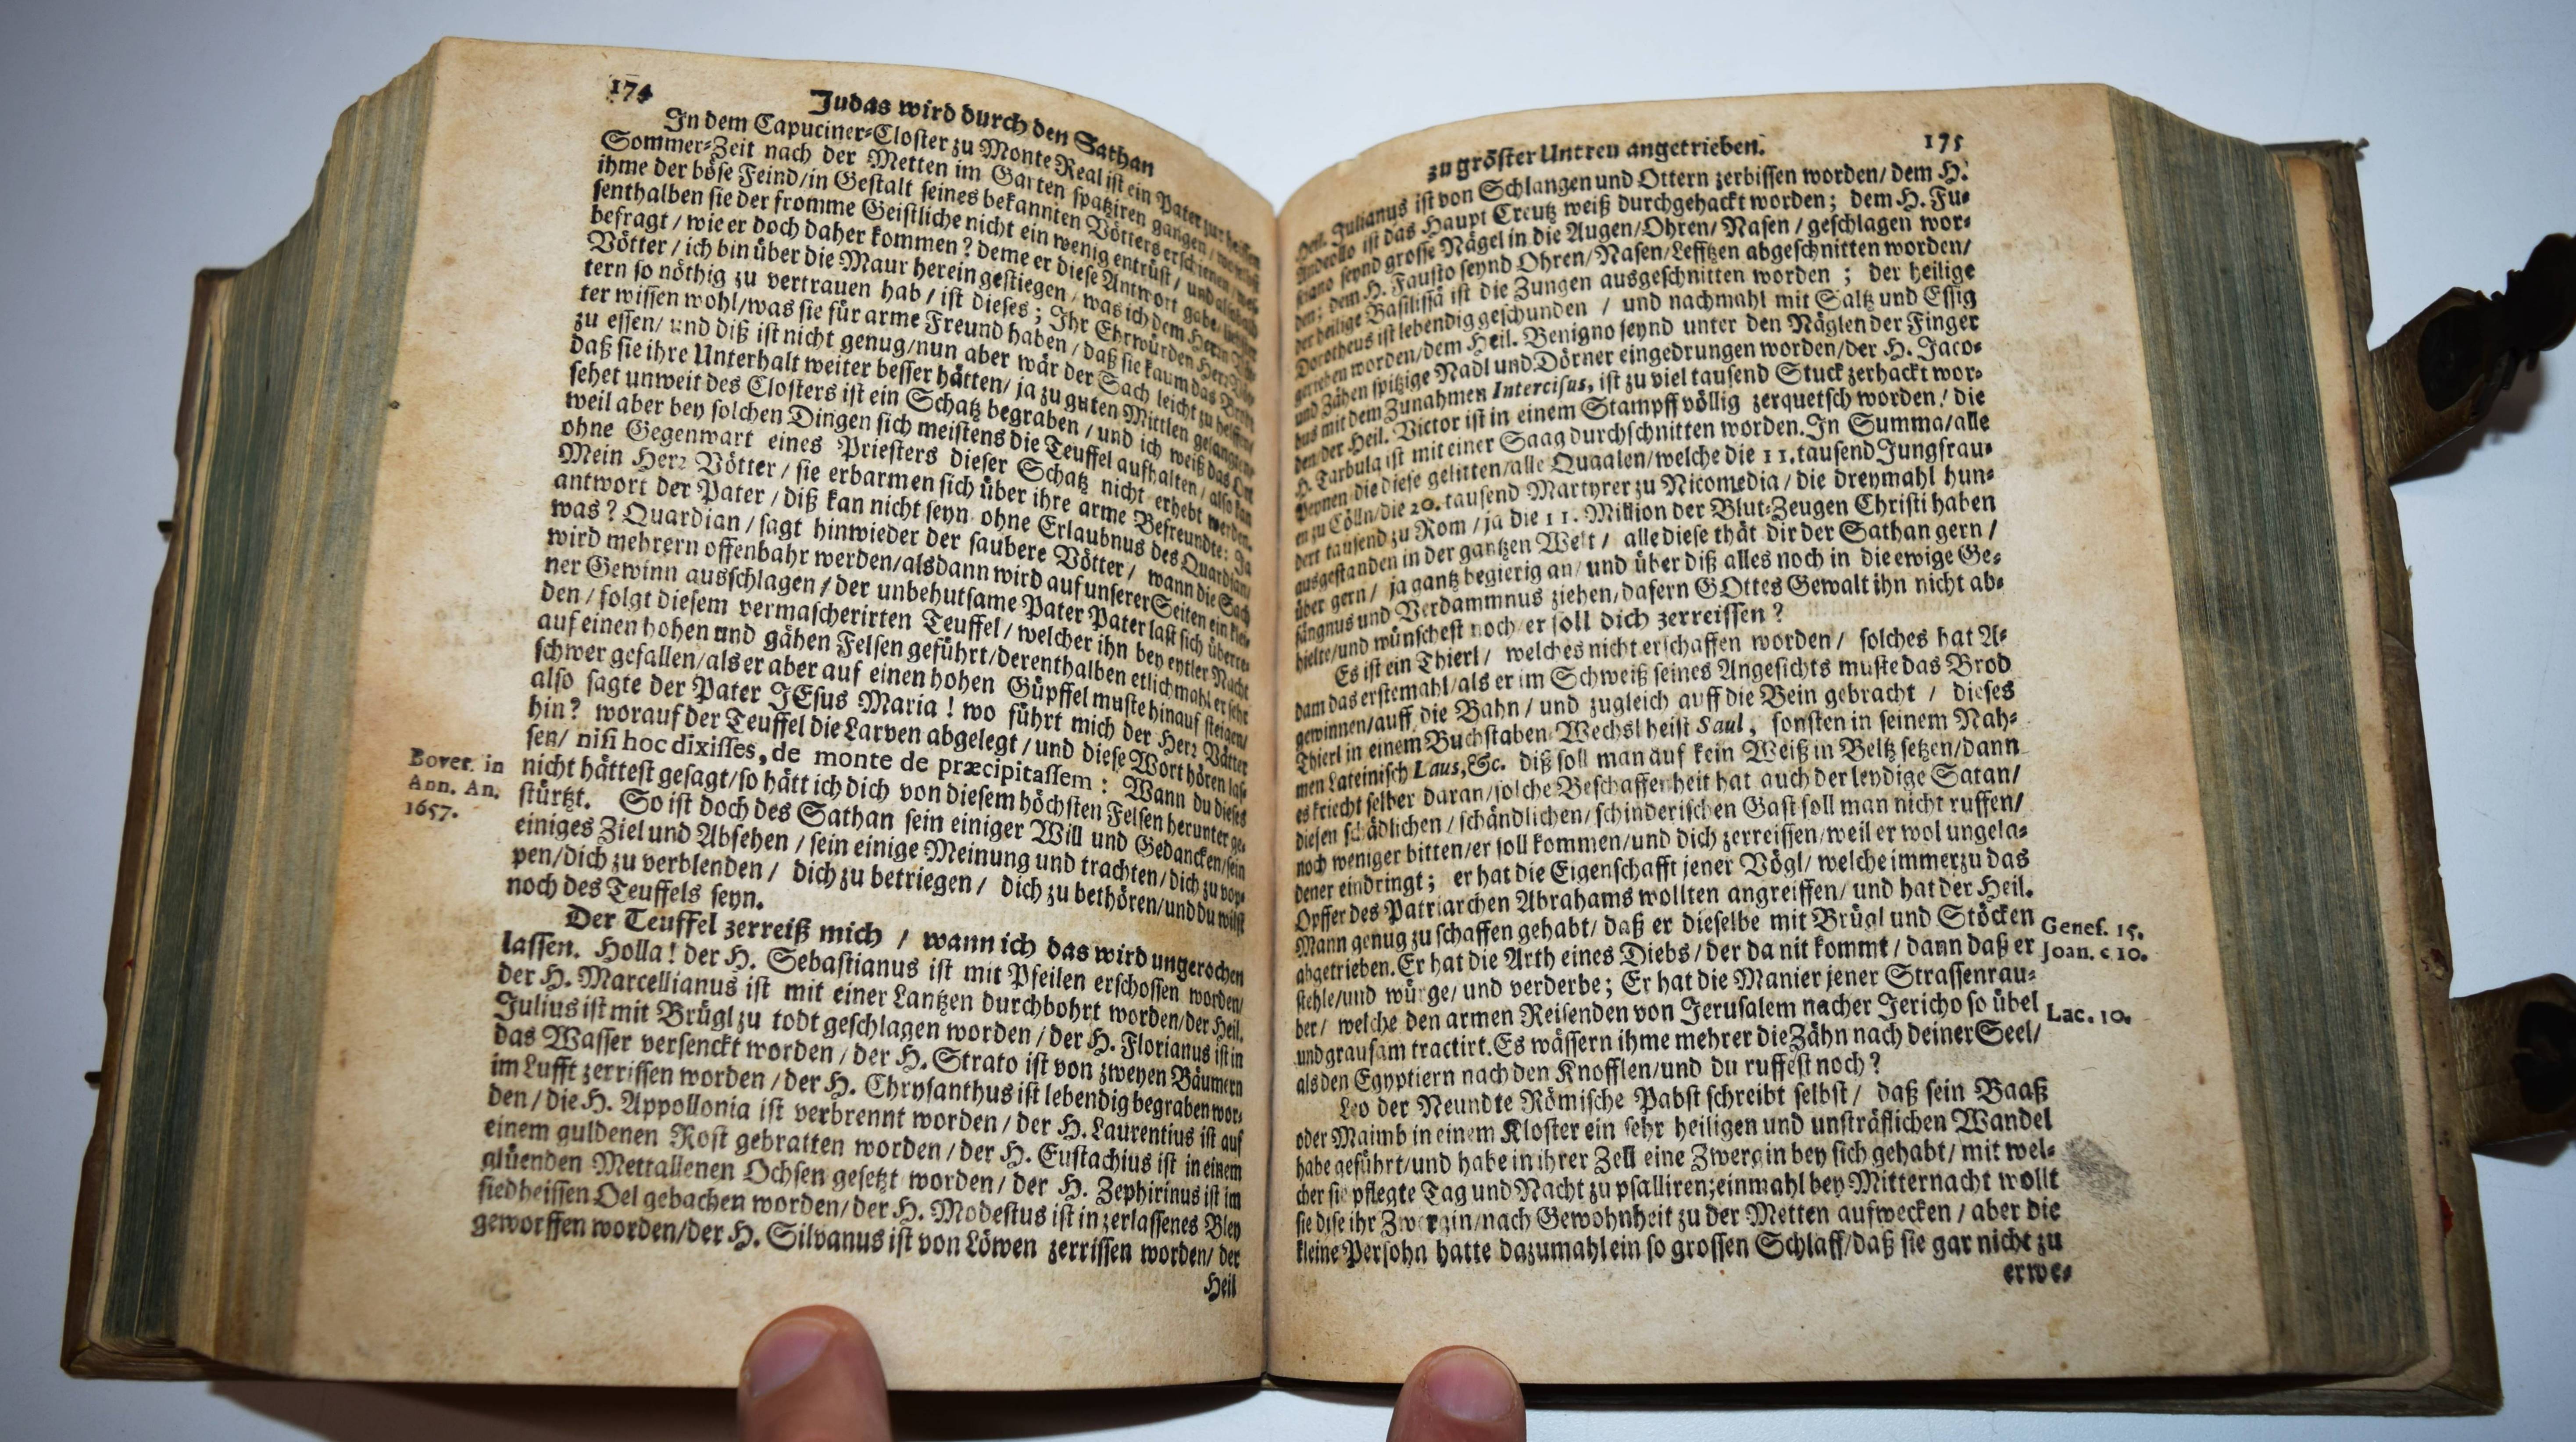 174
Judas wird durch den Sathan
In dem Capuciner-Closter zu Monte Real ist ein Pater zur heissen
Sommer-Zeit nach der Metten im Garten spatziren gangen /
ihme der böse Feind/in Gestalt seines bekannten Vötters erschienen/
senthalben sie der fromme Geistliche nicht ein wenig entrüst / und alsobald
befragt / wie er doch daher kommen? deme er diese Antwort gabe:
Vötter / ich bin über die Maur herein gestiegen / was ich dem Herrn
tern so nöthig zu vertrauen hab / ist dieses; Ihr Ehrwürden Herr
ter wissen wohl/was sie für arme Freund haben / daß sie kaum das Brod
zu essen/ und diß ist nicht genug/nun aber wär der Sach leicht zu helffen/
daß sie ihre Unterhalt weiter besser hätten/ ja zu guten Mittlen gelangten
sehet unweit des Closters ist ein Schatz begraben / und ich weiß das Ort
weil aber bey solchen Dingen sich meistens die Teuffel aufhalten / also kan
ohne Gegenwart eines Priesters dieser Schatz nicht erhebt werden.
Mein Herr Vötter / sie erbarmen sich über ihre arme Befreundte: Ja
antwort der Pater / diß kan nicht seyn ohne Erlaubnus des Quardian/
was? Quardian / sagt hinwieder der saubere Vötter / wann die Sach
wird mehrern offenbahr werden/alsdann wird auf unserer Seiten ein klei-
ner Gewinn ausschlagen / der unbehutsame Pater Pater last sich überre-
den / folgt diesem vermascherirten Teuffel / welcher ihn bey eytler Nacht
auf einen hohen und gähen Felsen geführt/derenthalben etlichmahl er sehr
schwer gefallen/als er aber auf einen hohen Güpffel muste hinauf steigen/
also sagte der Pater JEsus Maria ! wo führt mich der Herr Vätter
hin? worauf der Teuffel die Larven abgelegt / und diese Wort hören las-
sen/ nisi hoc dixisses, de monte de præcipitassem : Wann du dieses
nicht hättest gesagt/so hätt ich dich von diesem höchsten Felsen herunter ge-
stürtzt. So ist doch des Sathan sein einiger Will und Gedancken/sein
einiges Ziel und Absehen / sein einige Meinung und trachten/dich zu vop-
pen/dich zu verblenden / dich zu betriegen / dich zu bethören/und du wilst
noch des Teuffels seyn.
Bover. in
Ann. An.
1657.
Der Teuffel zerreiß mich / wann ich das wird ungerochen
lassen. Holla! der H. Sebastianus ist mit Pfeilen erschossen worden/
der H. Marcellianus ist mit einer Lantzen durchbohrt worden/der Heil.
Julius ist mit Brügl zu todt geschlagen worden / der H. Florianus ist in
das Wasser versenckt worden / der H. Strato ist von zweyen Bäumern
im Lufft zerrissen worden / der H. Chrysanthus ist lebendig begraben wor-
den / die H. Appollonia ist verbrennt worden / der H. Laurentius ist auf
einem guldenen Rost gebratten worden / der H. Eustachius ist in einem
glüenden Mettallenen Ochsen gesetzt worden/ der H. Zephirinus ist im
siedheissen Oel gebachen worden/ der H. Modestus ist in zerlassenes Bley
geworffen worden/der H. Silvanus ist von Löwen zerrissen worden/ der
Heil
zu gröster Untreu angetrieben. 175
Heil. Julianus ist von Schlangen und Ottern zerbissen worden/ dem H.
ist das Haupt Creutz weiß durchgehackt worden ; dem H. Fu-
sciano seynd grosse Nägel in die Augen/Ohren/ Nasen / geschlagen wor-
den; dem H. Fausto seynd Ohren/Nasen/Lefftzen abgeschnitten worden/
der heilige Basilissä ist die Zungen ausgeschnitten worden ; der heilige
Dorotheus ist lebendig geschunden / und nachmahl mit Saltz und Essig
gerieben worden/dem Heil. Benigno seynd unter den Näglen der Finger
und Zähen spitzige Nadl und Dörner eingedrungen worden/der H. Jaco-
bus mit dem Zunahmen Intercisus, ist zu viel tausend Stuck zerhackt wor-
den/der Heil. Victor ist in einem Stampff völlig zerquetsch worden/ die
H. Tarbula ist mit einer Saag durchschnitten worden. In Summa/alle
Peynen die diese gelitten/alle Quaalen/welche die 11. tausend Jungfrau-
en zu Cölln/die 20. tausend Martyrer zu Nicomedia / die dreymahl hun-
dert tausend zu Rom / ja die 11. Million der Blut-Zeugen Christi haben
ausgestanden in der gantzen Welt / alle diese thät dir der Sathan gern /
über gern / ja gantz begierig an/ und über diß alles noch in die ewige Ge-
fängnus und Verdammnus ziehen/dafern GOttes Gewalt ihn nicht ab-
hielte/und wünschest noch er soll dich zerreissen ?
Es ist ein Thierl / welches nicht erschaffen worden / solches hat A-
dam das erstemahl/als er im Schweiß seines Angesichts muste das Brod
gewinnen/auff die Bahn / und zugleich auff die Bein gebracht / dieses
Thierl in einem Buchstaben Wechsl heist Saul, sonsten in seinem Nah-
men Lateinisch Laus, &c. diß soll man auf kein Weiß in Beltz setzen/dann
es kriecht selber daran/solche Beschaffenheit hat auch der leydige Satan/
diesen schädlichen / schändlichen/ schinderischen Gast soll man nicht ruffen/
noch weniger bitten/er soll kommen/und dich zerreissen/weil er wol ungela-
dener eindringt ; er hat die Eigenschafft jener Vögl/ welche immerzu das
Opffer des Patriarchen Abrahams wollten angreiffen/ und hat der Heil.
Mann genug zu schaffen gehabt/ daß er dieselbe mit Brügl und Stöcken
abgetrieben. Er hat die Arth eines Diebs / der da nit kommt / dann daß er
stehle/und würge/ und verderbe ; Er hat die Manier jener Strassenrau-
ber / welche den armen Reisenden von Jerusalem nacher Jericho so übel
und grausam tractirt. Es wässern ihme mehrer die Zähn nach deiner Seel/
als den Egyptiern nach den Knofflen/und du ruffest noch ?
Genes. 15.
Joan. c 10.
Luc. 10.
Leo der Neundte Römische Pabst schreibt selbst / daß sein Baaß
oder Maimb in einem Kloster ein sehr heiligen und unsträflichen Wandel
habe geführt/und habe in ihrer Zell eine Zwergin bey sich gehabt/ mit wel-
cher sie pflegte Tag und Nacht zu psalliren; einmahl bey Mitternacht wollt
sie dise ihr Zwergin/nach Gewohnheit zu der Metten aufwecken / aber die
kleine Persohn hatte dazumahl ein so grossen Schlaff/daß sie gar nicht zu
erwe-